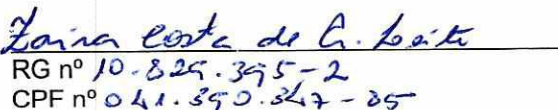 Zaira Costa de G. Leite
RG nº 10.829.395-2
CPF nº 041.390.347-85